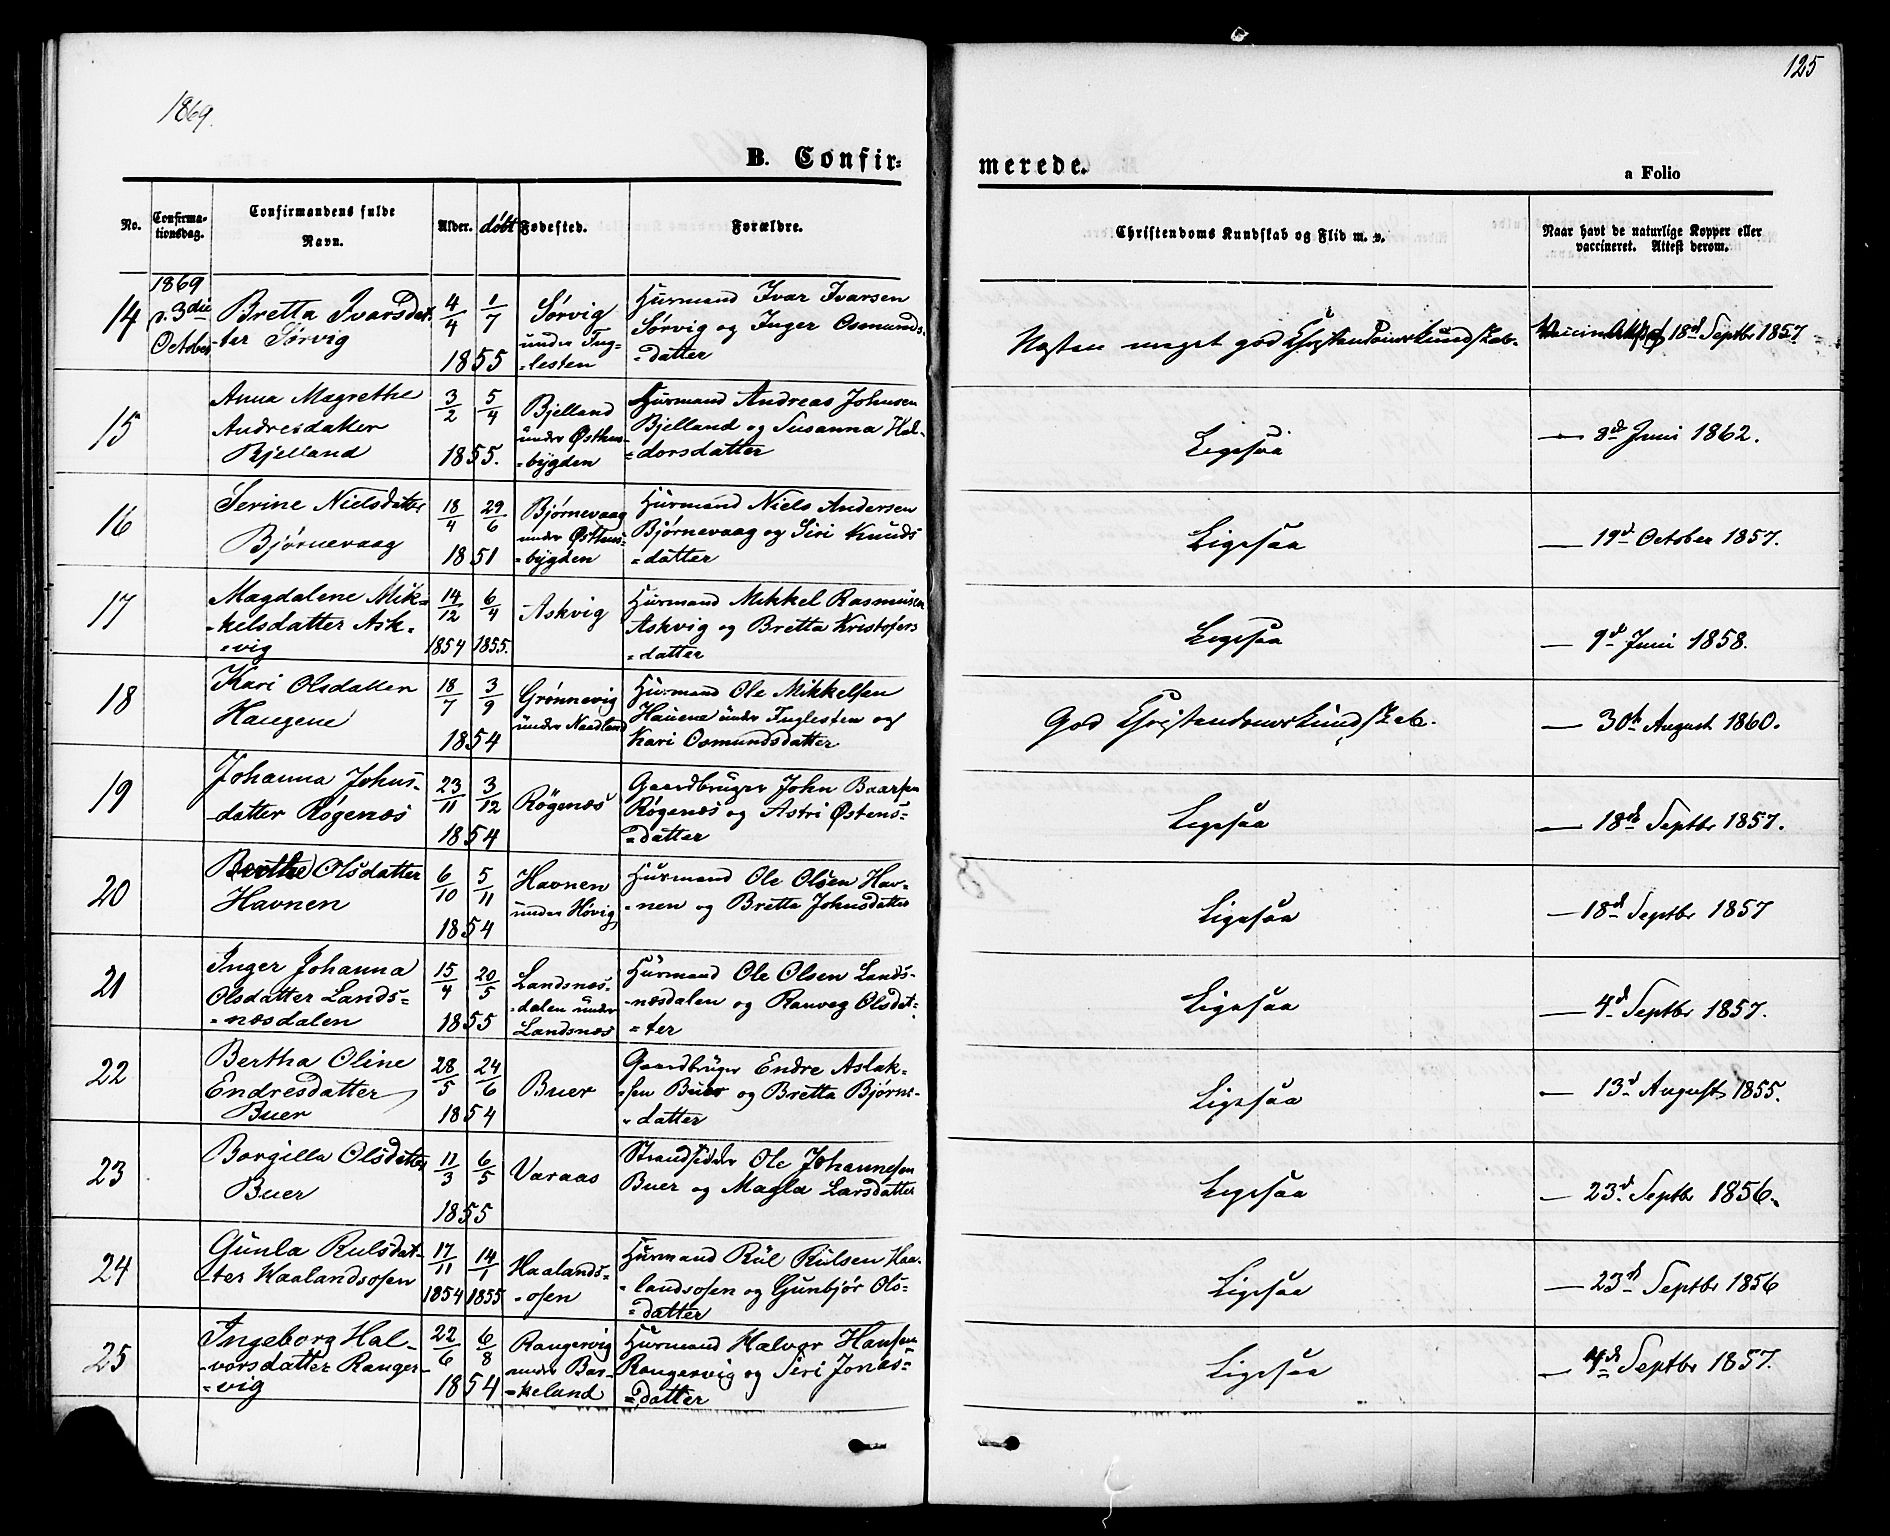 125
1869.
B. Confir=
merede.
a Folio
No.
Confirma-
tionsdag.
Confirmandens fulde
Navn.
Alder.
døbt
Fødested.
Forældre.
Christendoms Kundskab og Flid m. v.
Naar havt de naturlige Kopper eller
vaccineret. Attest derom.
1869
14
d. 3die
October
Bretta Ivarsdat-
ter Sørvig
4/4 1/7
1855
Sørvig
under Fug-
-lesten
Huusmand Ivar Ivarsen
Sørvig og Inger Osmunds-
=datter
Næsten meget god Christendomskundskab.
Vaccin Attest 18d Septbr 1857
15
Anna Magrethe
Andresdatter
Bjelland
3/2 5/4
1855.
Bjelland
under Østhus-
-bygden
Huusmand Andreas Johnsen
Bjelland og Susanna Hal-
=dorsdatter
Ligesaa
— 8d Juni 1862.
16
Serine Nielsdatter
Bjørnevaag
18/4 29/6
1851
Bjørnevaag
under Østhus-
-bygden
Huusmand Niels Andersen
Bjørnevaag og Siri Knuds
=datter
Ligesaa
— 19d October 1857.
17
Magdalene Mik=
-kelsdatter Ask=
=vig
14/12 6/4
1854 1855.
Askvig
Huusmand Mikkel Rasmusen
Askvig og Bretta Kristofers
=datter
Ligesaa
— 9d Juni 1858.
18
Kari Olsdatter
Haugene
18/7 3/9
1854
Grønnevig
under Naadland
Huusmand Ole Mikkelsen
Hauene under Fuglesten og
Kari Osmundsdatter
God Christendomskundskab.
— 30te August 1860.
19
Johanna Johns-
-datter Røgenæs
23/11 3/12
1854
Røgenæs
Gaardbruger John Baarsen
Røgenæs og Astri Østens=
=datter
Ligesaa
— 18de Septbr 1857.
20
Berthe Olsdatter
Havnen
6/10 5/11
1854
Havnen
under Høvig
Huusmand Ole Olsen Hav-
-nen og Bretta Johnsdatter
Ligesaa
— 18d Septbr 1857
21
Inger Johanna
Olsdatter Lands=
=næsdalen
15/4 20/5
1855
Landsnæs-
-dalen under
Landsnæs
Huusmand Ole Olsen Lands-
-næsdalen og Ranveg Olsdat-
=ter
Ligesaa
— 4d Septbr 1857.
22
Bertha Oline
Endresdatter
Buer
28/5 24/6
1854
Buer
Gaardbruger Endre Aslak-
-sen Buer og Bretta Bjørns-
=datter
Ligesaa
— 13d August 1855.
23
Borgilla Olsdatter
Buer
17/3 6/5
1855
Varaas
Strandsidder Ole Johannesen
Buer og Magla Larsdatter
Ligesaa
— 23d Septbr 1856.
24
Gunla Rulsdat-
-ter Haalandsosen
17/11 14/1
1854 1855
Haalands-
-osen
Huusmand Rul Rulsen Haa-
-landsosen og Gunbjør Ols-
=datter
Ligesaa
— 23d Septbr 1856
25
Ingeborg Hal-
-vorsdatter Ranger-
=vig
22/6 6/8
1854
Rangervig
under Bar-
-keland
Huusmand Halvor Hansen
Rangervig og Siri Jonas=
=datter
Ligesaa
— 4d Septbr 1857.